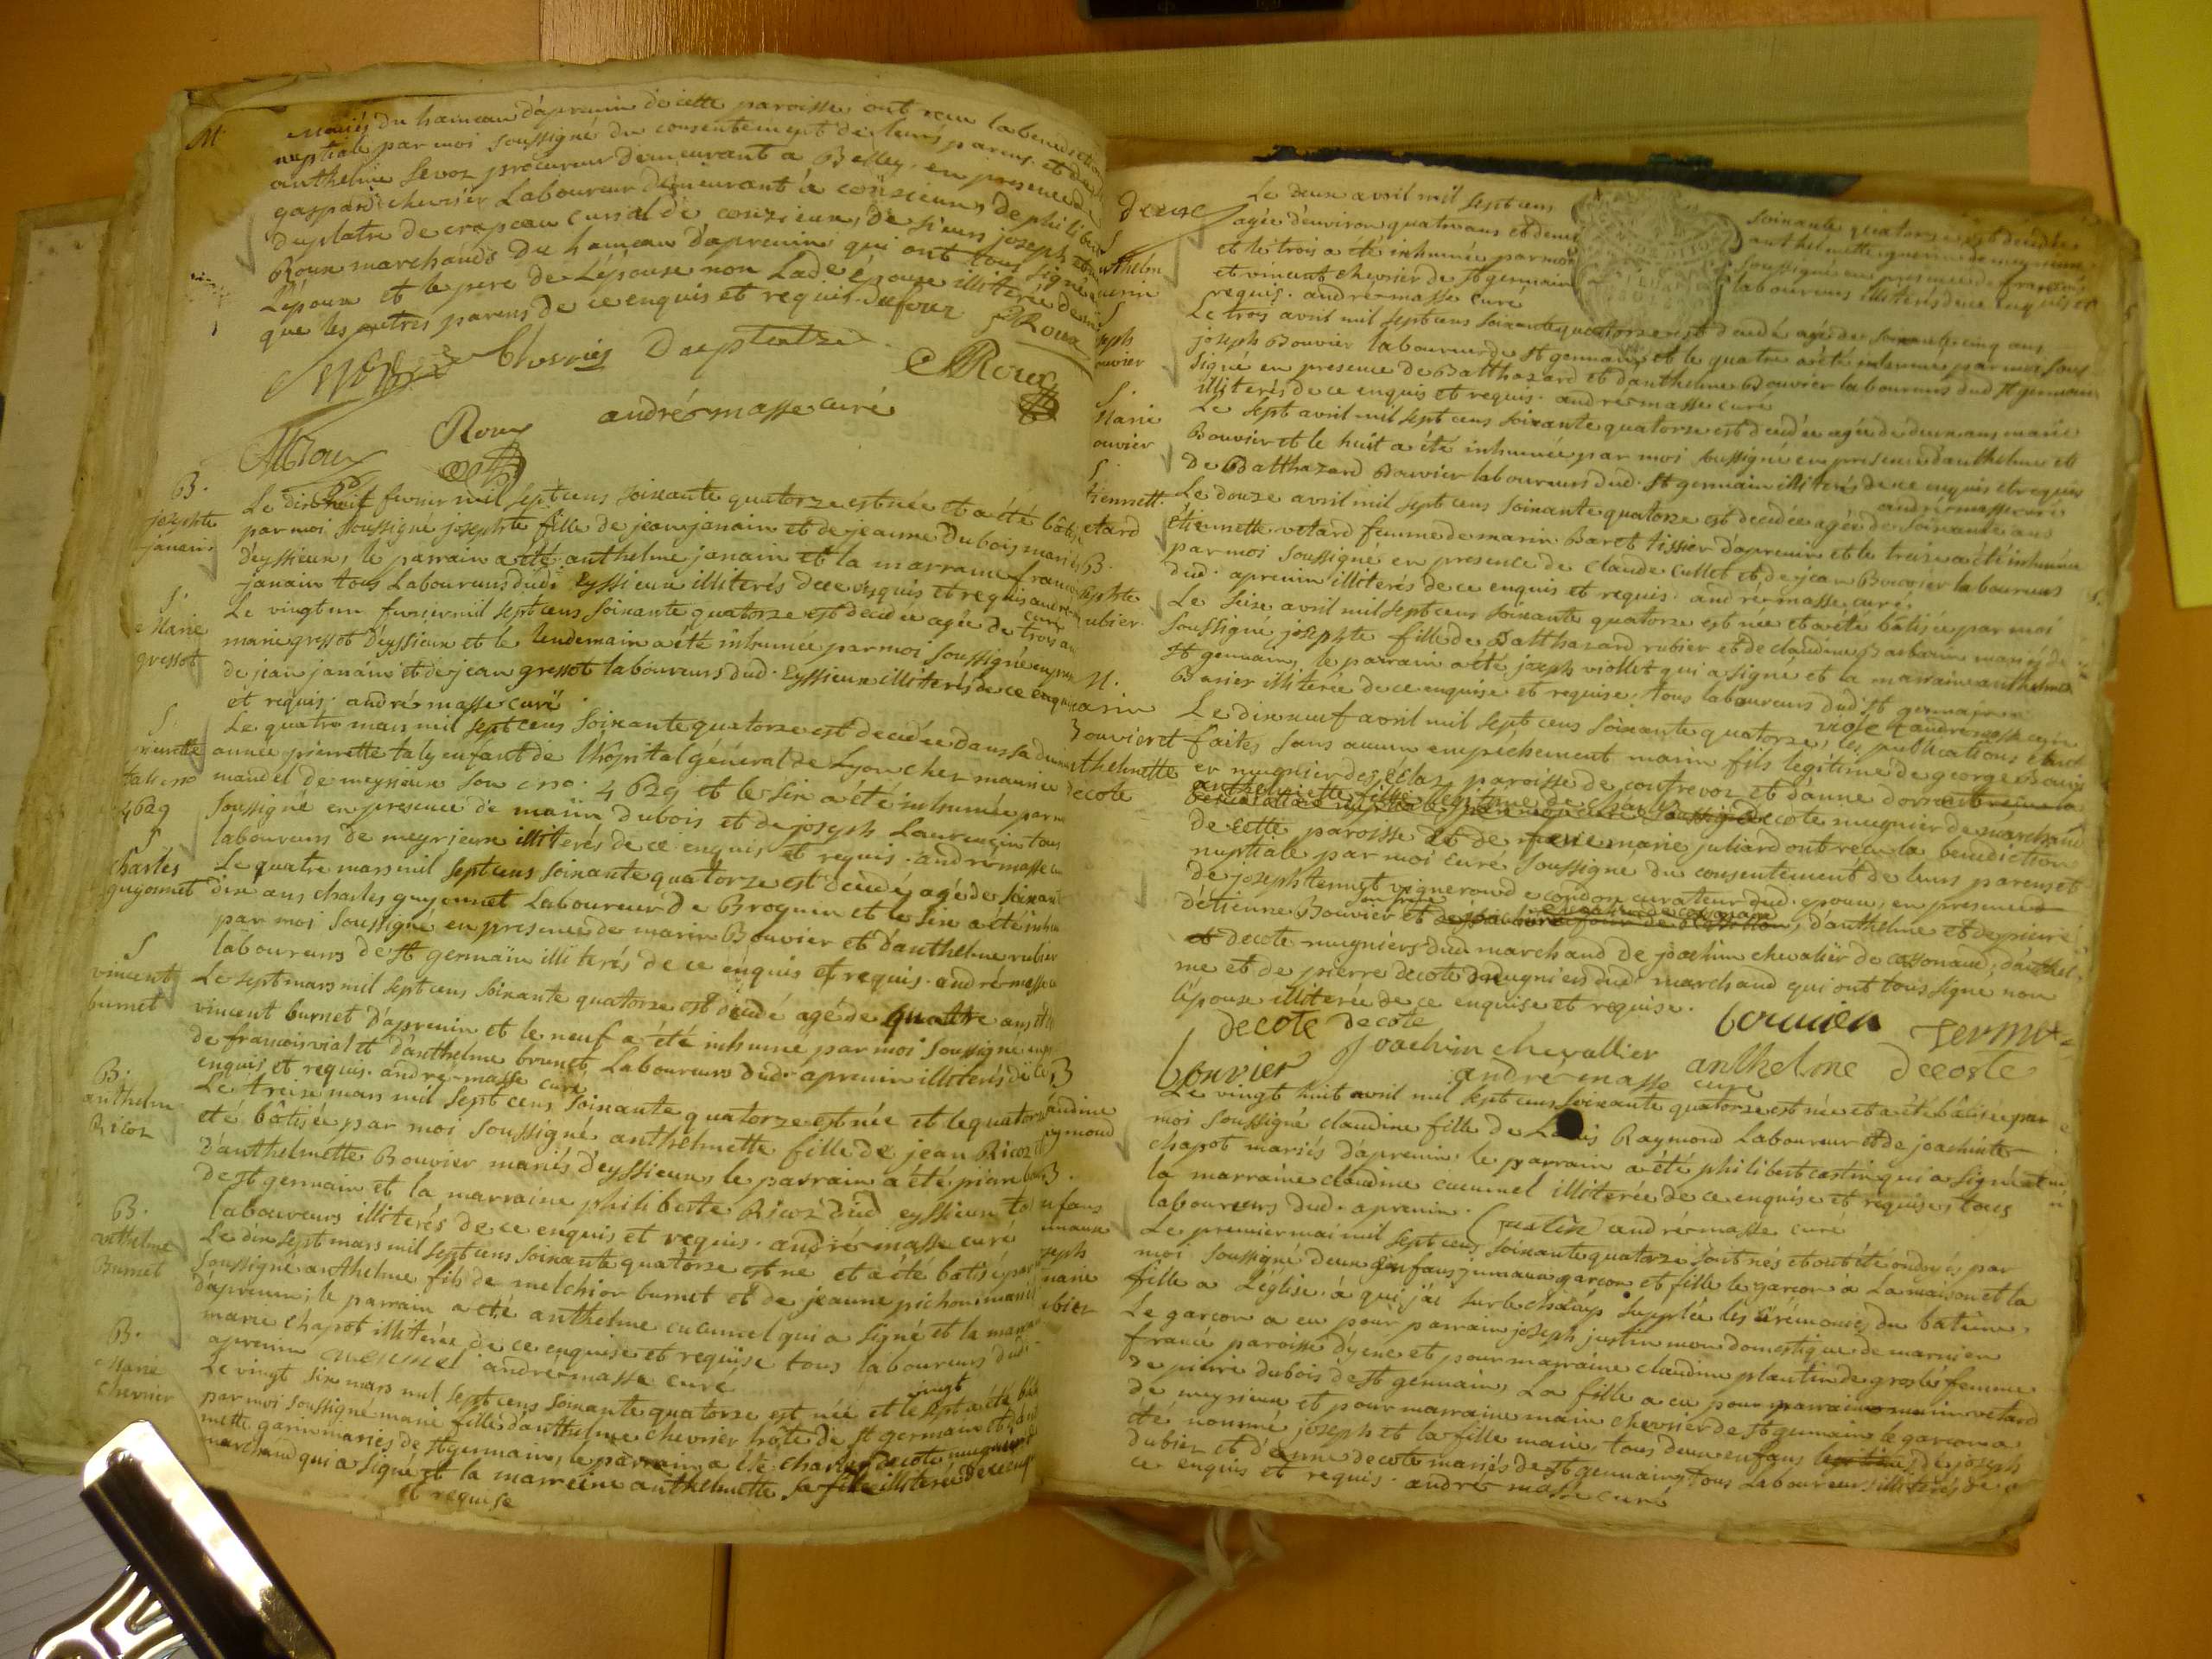 M.
mariés du hameau d'aprenin de cette paroisse ont reçu la benediction
nuptiale par moi soussigné du consentement de leurs parens et de
anthelme sevoz procureur demeurant à Belley, en presence de
gaspard chevrier Laboureur demeurant à conzieux, de philibert
duplatre de crapeau curial de conzieux, de sieurs joseph et
Roux marchands du hameau d'aprenin qui ont tous signé
L'époux et le pere de L'épouse non Lade épouse illiterée de
que les autres parens de ce enquis et requis.
Chevrier Duplatre
P Roux
Roux
andré masse curé
Roux
B.
josephte
janain
Le dixhuit fevrier mil sept cens soixante quatorze est née et a été bâtisée
par moi soussigné josephte fille de jean janain et de jeanne Dubois mariés
d'eyssieux, le parrain a été anthelme janain et la marraine
janain tous Laboureurs dudi Eyssieux illiterés de ce enquis et requis andré masse
curé
S.
Marie
gressot
Le vingt un fevrier mil sept cens soixante quatorze est decedée agée de trois ans
marie gressot d'eyssieux et le lendemain a été inhumée par moi soussigné en presence
de jean janain et de jean gressot laboureurs dud. Eyssieux illiterés de ce enquis
et requis. andré masse curé
S.
4629
Le quatre mars mil sept cens soixante quatorze est decedée dans sa
année pierrette taly enfant de l'hopital général de Lyon chez maurice
mandel de meyrieux son no. 4629 et le six a été inhumée par moi
soussigné en presence de marin Dubois et de joseph Laurencin tous
laboureurs de meyrieux illiterés de ce enquis et requis. andré masse
S
Charles
guyonnet
Le quatre mars mil sept cens soixante quatorze est decedé agé de soixante
dix ans charles guyonnet Laboureur de Brognin et le six a été
par moi soussigné en presence de marin Bouvier et d'anthelme rubier
laboureurs de st germain illiterés de ce enquis et requis. andré masse
S
vincent
burnet
Le sept mars mil sept cens soixante quatorze est decedé agé de quattre ans
vincent burnet d'aprenin et le neuf a été inhumé par moi soussigné en
de francois vial et d'anthelme brunet Laboureurs dud. aprenin illiterés de ce
enquis et requis. andré masse curé
B.
anthelm
Ricoz
Le treize mars mil sept cens soixante quatorze est née et le quatorze
été bâtisée par moi soussigné anthelmette fille de jean Ricoz
d'anthelmette Bouvier mariés d'eyssieux, le parrain a été
de st germain et la marraine philiberte Ricoz dud eyssieux
laboureurs illiterés de ce enquis et requis. andré masse curé
B.
anthelme
Burnet
Le dix sept mars mil sept cens soixante quatorze est né et a été batisé par
soussigné anthelme fils de melchior burnet et de jeanne pichon mariés
d'aprenin, le parrain a été anthelme cucumel qui a signé et la marraine
marie chapot illiterée de ce enquise et requise tous laboureurs dud.
aprenin cucumel andré masse curé
B.
Marie
chevrier
Le vingt six mars mil sept cens soixante quatorze est née et le vingt sept a été
par moi soussigné marie fille d'anthelme chevrier hôte de st germain et
mette garin mariés de st germain, le parrain a été charles decote mugnier
marchand qui a signé et la marreine anthelmette sa fille illiterée de ce
et requise
S
Le deux avril mil sept cens soixante quatorze est decedée
agée d'environ quatre ans et demi
et le trois a été inhumée par moi soussigné en presence de francois
et vincent chevrier de st germain laboureurs illiterés de ce enquis et
requis. andré masse curé
S
Le trois avril mil sept cens soixante quatorze est decedé agé de soixante cinq ans
joseph Bouvier laboureur de st germain et le quatre a été inhumé par moi sous
signé en presence de Balthazard et d'anthelme Bouvier laboureurs dud st germain
illiterés de ce enquis et requis. andré masse curé
S.
Marie
ouvier
Le sept avril mil sept cens soixante quatorze est decedée agée de deux ans marie
Bouvier et le huit a été inhumée par moi soussigné en presence d'anthelme et
de Balthazard Bouvier laboureurs dud. st germain illiterés de ce enquis et requis
andré masse curé
S
tiennett
etard
Le douze avril mil sept cens soixante quatorze est decedée agée de soixante ans
étiennette vetard femme de marin Baret tissier d'aprenin et le treize a été inhumée
par moi soussigné en presence de claude Cullet et de jean Bouvier laboureurs
dud. aprenin illiterés de ce enquis et requis. andré masse curé.
B.
sephte
ubier
Le seize avril mil sept cens soixante quatorze est née et a été bâtisée par moi
soussigné josephte fille de Balthazard rubier et de claudine Barbarin mariés de
st germain, le parrain a été joseph viollet qui a signé et la marraine anthelme
Barier illiterée de ce enquise et requise, tous laboureurs dud st germain
violet andré masse curé
M.
arin
Bouvier et
thelmette
decote
Le dix neuf avril mil sept cens soixante quatorze, les publications étant
faites sans aucun empêchement marin fils legitime de george Bouvier
er mugnier des éclaz, paroisse de contrevoz et d'anne
anthelmette fille legitime de charles decote mugnier de marchand
de cette paroisse et de marie juliard ont reçu la benediction
nuptiale par moi curé soussigné du consentement de leurs parens et
de joseph termet vigneron de condon curateur dud. epoux, en presence
d'étienne Bouvier son frère et d'anthelme et de pierre
decote mugniers dud marchand de joachim chevalier de cossonand, d'anthel
me et de pierre decote mugniers dud. marchand qui ont tous signé non
l'épouse illiterée de ce enquise et requise.
decote decote bouvier termet
bouvier Joachin chevallier anthelme decoste
andré masse curé
B
audine
aymond
Le vingt huit avril mil sept cens soixante quatorze est née et a été bâtisée par
moi soussigné claudine fille de Louis Raymond Laboureur et de joachinte
chapot mariés d'aprenin. le parrain a été philibert castin qui a signé et
la marraine claudine cucumel illiterée de ce enquise et requise, tous
laboureurs dud. aprenin. Castin andré masse curé
B.
nfans
umaux
seph
marie
ubier
Le premier mai mil sept cens soixante quatorze sont nés et ont été ondoyés par
moi soussigné deux enfans jumaux garcon et fille le garcon à La maison et la
fille a L'eglise, à qui j'ai sur le champ suppléé les cérémonies du batême,
Le garcon a eu pour parrain joseph justin mon domestique de marnier
francé paroisse d'yene et pour marraine claudine plantin de groslé femme
de pierre dubois de st germain, La fille a eu pour parrain marin vetard
de meyrieux et pour marraine marie chevrier de st germain le garcon a
été nommé joseph et la fille marie, tous deux enfans legitimes de joseph
dubier et d'anne decote mariés de st germain, tous Laboureurs illiterés de
ce enquis et requis. andré masse curé